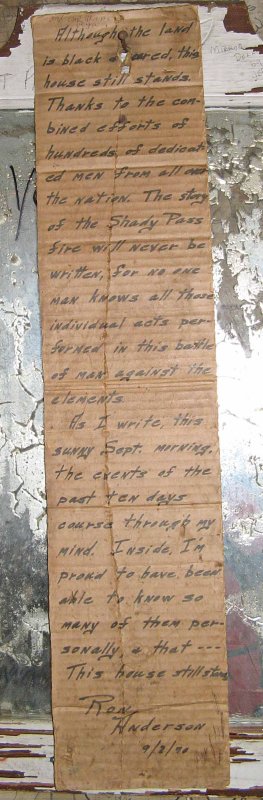 Although the land
is black & red, this
house still stands.
Thanks to the com-
bined efforts of
hundreds of dedicat-
ed men from all over
the nation. The story
of the Shady Pass
fire will never be
written, for no one
man knows all those
individual acts per-
formed in this battle
of man against the
elements.
As I write, this
sunny Sept. morning,
the events of the
past ten days
course through my
mind. Inside, I'm
proud to have been
able to know so
many of them per-
sonally, & that ---
This house still stands
Ron
Anderson
9/2/70